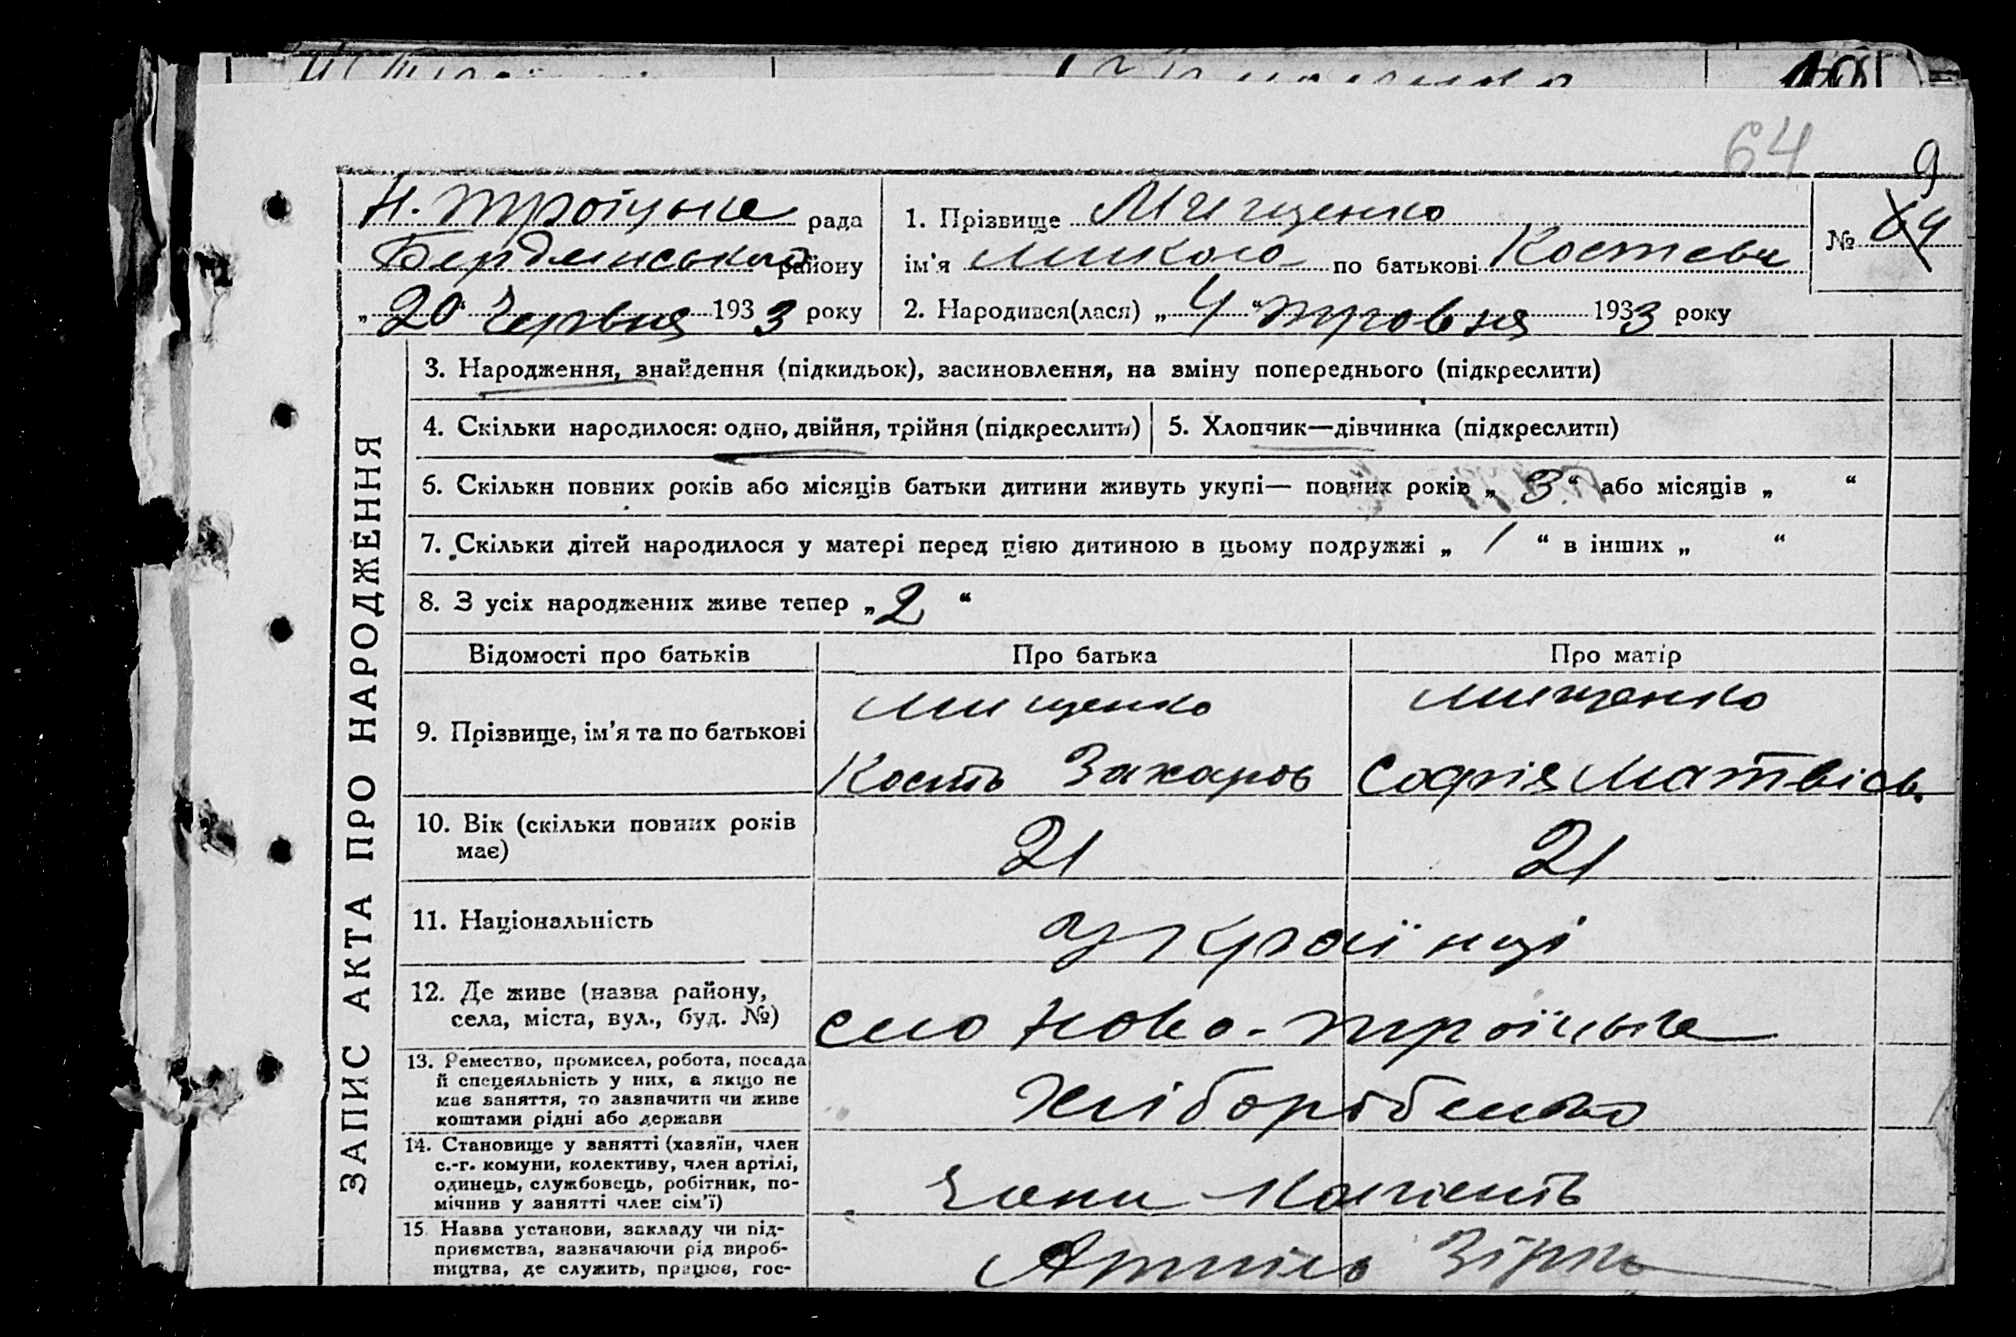 64
9
Н. Троіцька рада
Бердянського району
„20“ Червня 1933 року
1. Прізвище Мищенко
ім'я Микола по батькові Костєви
2. Народився(лася) „4“ травня 1933 року
№ 64
ЗАПИС АКТА ПРО НАРОДЖЕННЯ
3. Народження, знайдення (підкидьок), засиновлення, на зміну попереднього (підкреслити)
4. Скільки народилося: одно, двійня, трійня (підкреслити)
5. Хлопчик—дівчинка (підкреслити)
6. Скільки повних років або місяців батьки дитини живуть укупі— повних років „3“ або місяців „ “
7. Скільки дітей народилося у матері перед цією дитиною в цьому подружжі „ 1 “ в інших „ “
8. З усіх народжених живе тепер „2“
Відомості про батьків
Про батька
Про матір
9. Прізвище, ім'я та по батькові
Мищенко
Кость Захаров
Мищенко
Софія Матвієв.
10. Вік (скільки повних років
має)
21
21
11. Національність
Українці
12. Де живе (назва району,
села, міста, вул., буд. №)
село Ново-Троїцьке
13. Ремество, промисел, робота, посада
й спецеяльність у них, а якщо не
має заняття, то зазначити чи живе
коштами рідні або держави
Хліборобство
14. Становище у занятті (хазяїн, член
с.-г. комуни, колективу, член артілі,
одинець, службовець, робітник, по-
мічнив у занятті член сім'ї)
Члени
15. Назва установи, закладу чи під-
приємства, зазначаючи рід вироб-
ництва, де служить, працює, гос-
Артіль Зірка